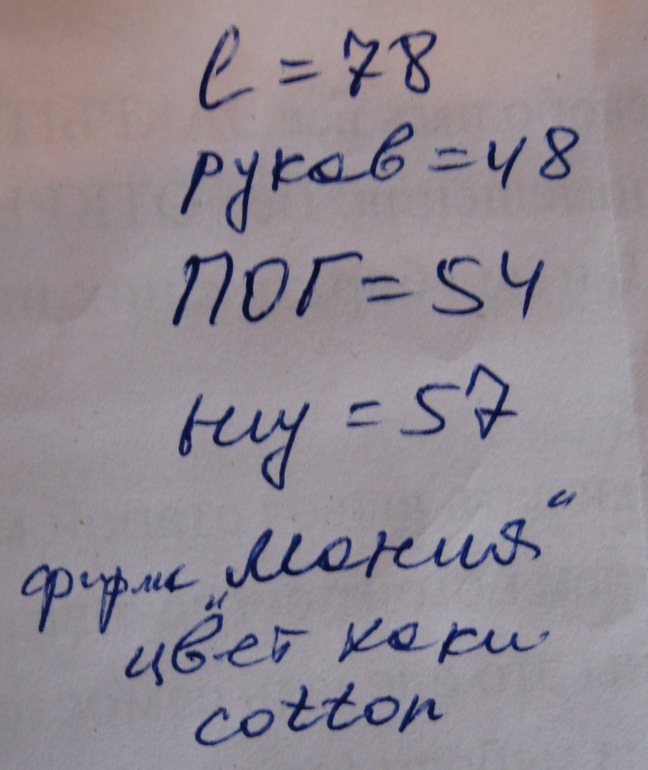 l = 78
рукав = 48
ПОГ = 54
низу = 57
фирма „Мания“
цвет хаки
cotton